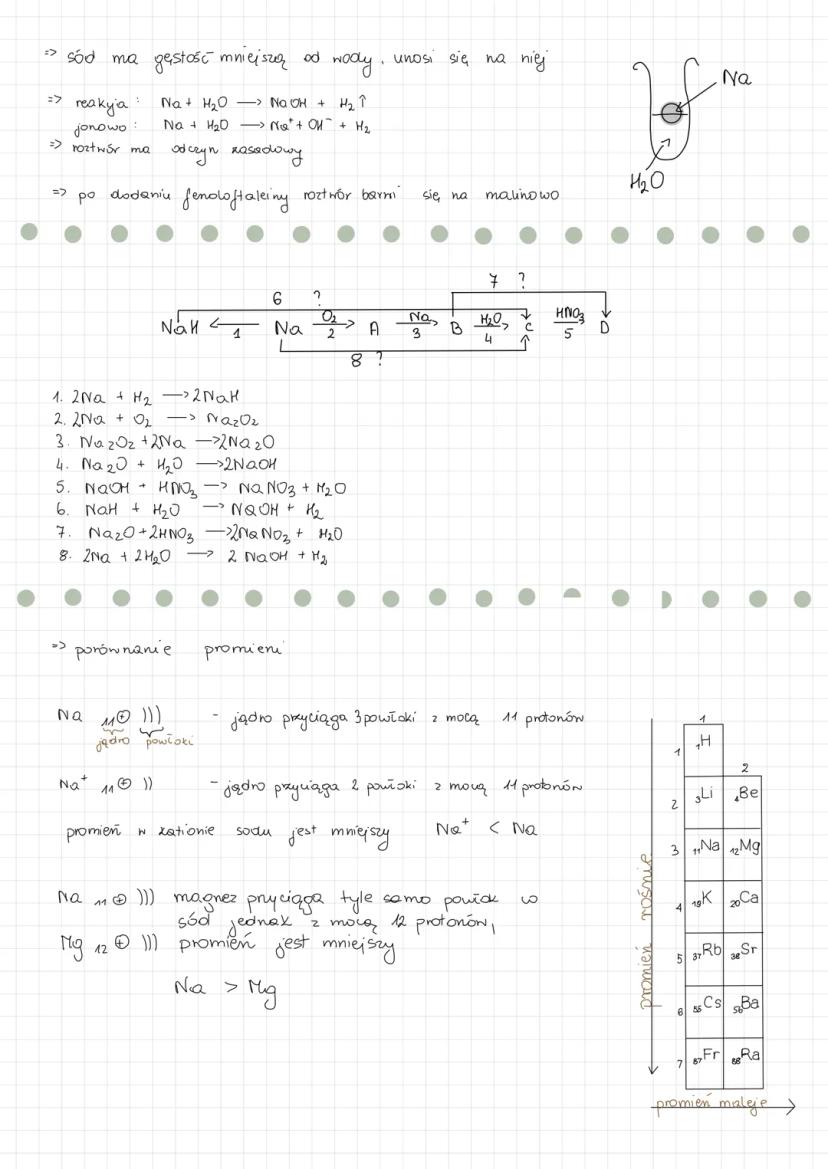 => sód ma gęstość mniejszą od wody, unosi się na niej
Na
=> reakcja : Na + H₂O —> NaOH + H₂↑
jonowo : Na + H₂O —> Na⁺ + OH⁻ + H₂
=> roztwór ma odczyn zasadowy
H₂O
=> po dodaniu fenoloftaleiny roztwór barwi się na malinowo
7 ?
6 ?
NaH <— 1 Na O₂ —> 2 A Na —> 3 B H₂O —> 4 C HNO₃ 5 D
8 ?
1. 2Na + H₂ —> 2NaH
2. 2Na + O₂ —> Na₂O₂
3. Na₂O₂ + 2Na —> 2Na₂O
4. Na₂O + H₂O —> 2NaOH
5. NaOH + HNO₃ —> NaNO₃ + H₂O
6. NaH + H₂O —> NaOH + H₂
7. Na₂O + 2HNO₃ —> 2NaNO₃ + H₂O
8. 2Na + 2H₂O —> 2 NaOH + H₂
=> porównanie promieni
Na 11⊕ ))) - jądro przyciąga 3 powłoki z mocą 11 protonów
jądro powłoki
Na⁺ 11⊕ )) - jądro przyciąga 2 powłoki z mocą 11 protonów
promień w kationie sodu jest mniejszy Na⁺ < Na
Na 11⊕ ))) magnez przyciąga tyle samo powłok co
sód jednak z mocą 12 protonów,
Mg 12⊕ ))) promień jest mniejszy
Na > Mg
1
1 ₁H
2
2 ₃Li ₄Be
3 ₁₁Na ₁₂Mg
4 ₁₉K ₂₀Ca
5 ₃₇Rb ₃₈Sr
6 ₅₅Cs ₅₆Ba
7 ₈₇Fr ₈₈Ra
promień rośnie
promień maleje